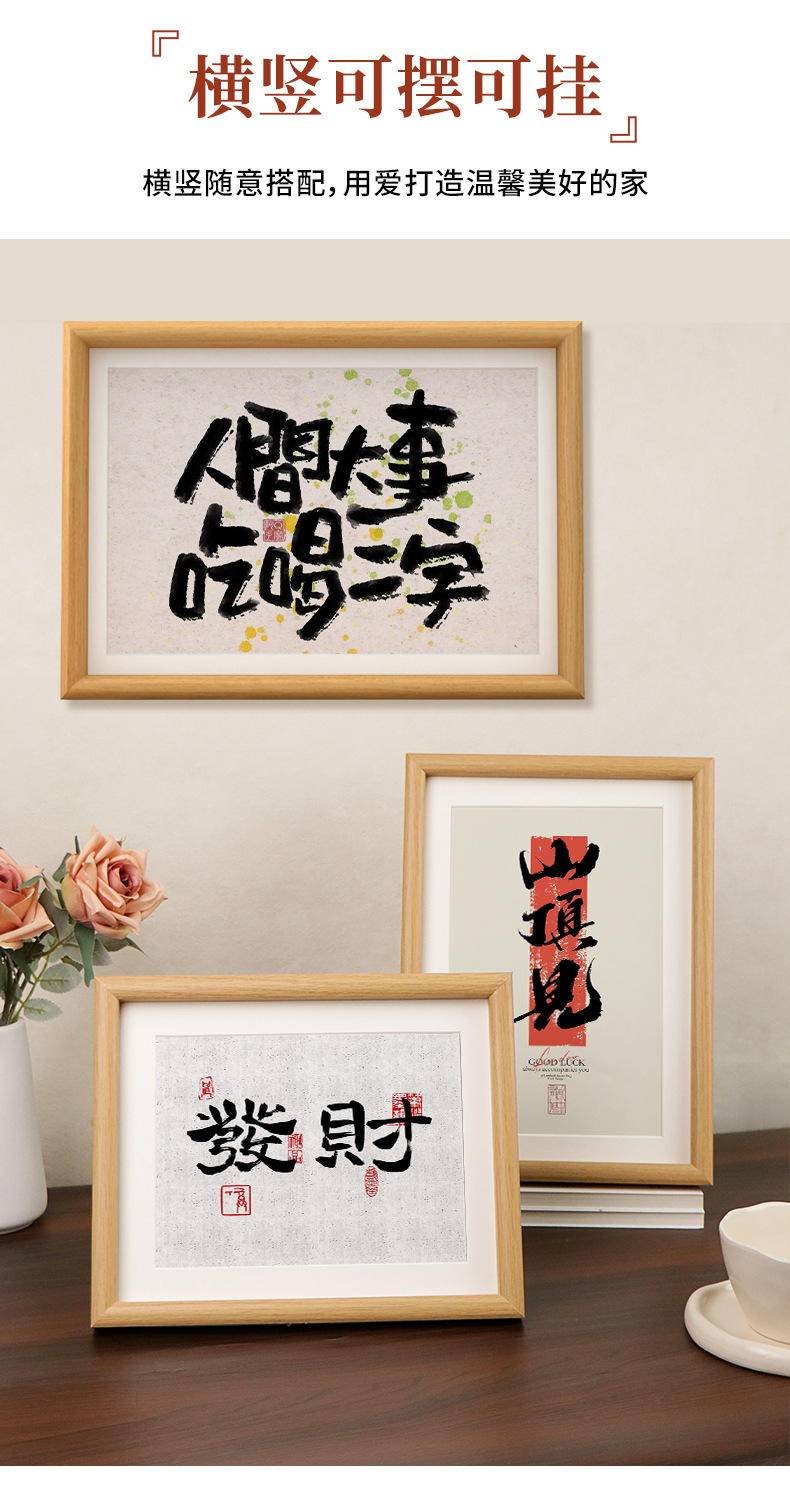 横竖可摆可挂
横竖随意搭配，用爱打造温馨美好的家
人間大事
吃喝二字
山
頂
見
GOOD LUCK
always accompanies you
發財